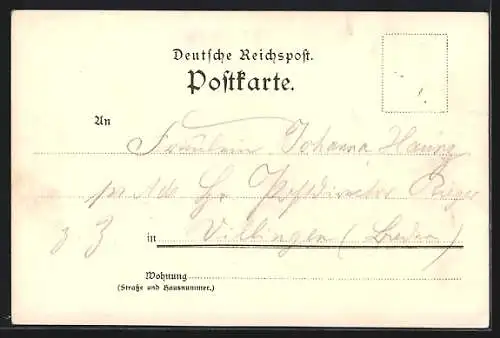 Deutsche Reichspost.
Postkarte.
An
Fräulein Johanna
p. Adr. H. Postdirector
z Z
in Villingen (Baden)
Wohnung
(Straße und Hausnummer.)